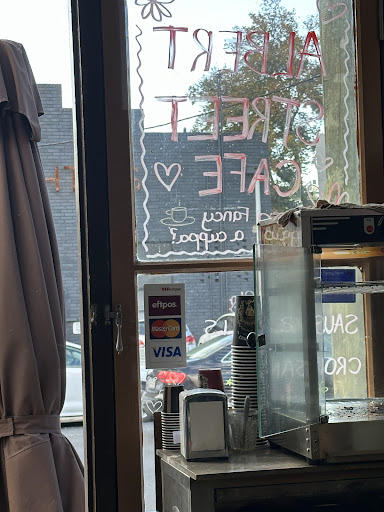 ALBERT
STREET
CAFE
Fancy
a cuppa?
eftpos
MasterCard
VISA
SAUS
CRO